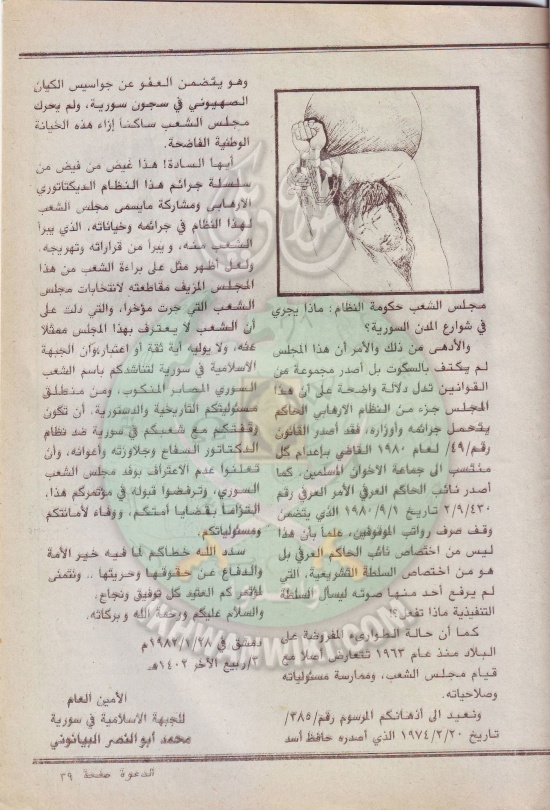 مجلس الشعب حكومة النظام: ماذا يجري
في شوارع المدن السورية؟
والأدهى من ذلك والأمر أن هذا المجلس
لم يكتف بالسكوت بل أصدر مجموعة من
القوانين تدل دلالة واضحة على أن هذا
المجلس جزء من النظام الارهابي الحاكم
يتحمل جرائمه وأوزاره، فقد أصدر القانون
رقم /٤٩/ لعام ١٩٨٠ القاضي بإعدام كل
منتسب الى جماعة الاخوان المسلمين، كما
أصدر نائب الحاكم العرفي الأمر العرفي رقم
٢/٩/٤٣٠ تاريخ ١٩٨٠/٩/١ الذي يتضمن
وقف صرف رواتب الموقوفين، علماً بأن هذا
ليس من اختصاص نائب الحاكم العرفي بل
هو من اختصاص السلطة التشريعية، التي
لم يرفع أحد منها صوته ليسأل السلطة
التنفيذية ماذا تفعل؟
كما أن حالة الطوارىء المفروضة على
البلاد منذ عام ١٩٦٣ تتعارض أصلا مع
قيام مجلس الشعب، وممارسة مسئولياته
وصلاحياته.
ونعيد الى أذهانكم المرسوم رقم /٣٨٥/
تاريخ ١٩٧٤/٢/٢٠ الذي أصدره حافظ أسد
وهو يتضمن العفو عن جواسيس الكيان
الصهيوني في سجون سورية، ولم يحرك
مجلس الشعب ساكنا إزاء هذه الخيانة
الوطنية الفاضحة.
أيها السادة! هذا غيض من فيض من
سلسلة جرائم هذا النظام الديكتاتوري
الارهابي ومشاركة مايسمى مجلس الشعب
لهذا النظام في جرائمه وخياناته، الذي يبرأ
الشعب منه، ويبرأ من قراراته وتهريجه.
ولعل أظهر مثل على براءة الشعب من هذا
المجلس المزيف مقاطعته لانتخابات مجلس
الشعب التي جرت مؤخرا، والتي دلت على
أن الشعب لا يعترف بهذا المجلس ممثلا
عنه، ولا يوليه أية ثقة أو اعتبار، وان الجبهة
الاسلامية في سورية لتناشدكم باسم الشعب
السوري الصابر المنكوب، ومن منطلق
مسئوليتكم التاريخية والدستورية. أن تكون
وقفتكم مع شعبكم في سورية ضد نظام
الدكتاتور السفاح وجلاوزته وأعوانه، وأن
تعلنوا عدم الاعتراف بوفد مجلس الشعب
السوري، وترفضوا قبوله في مؤتمركم هذا،
التزاماً بقضايا أمتكم، ووفاء لأمانتكم
ومسئولياتكم.
سدد الله خطاكم لما فيه خير الأمة
والدفاع عن حقوقها وحريتها .. ونتمنى
لمؤتمركم العتيد كل توفيق ونجاح.
والسلام عليكم ورحمة الله وبركاته.
دمشق في ١٩٨٢/١/٢٨م
ربيع الآخر ١٤٠٢هـ
الأمين العام
للجبهة الاسلامية في سورية
محمد أبو النصر البيانوني
الدعوة صفحة ٣٩